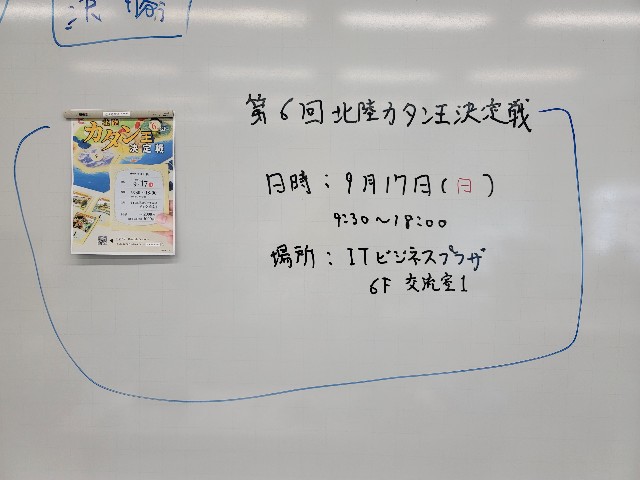 第6回北陸カタン王決定戦
日時：9月17日(日)
9:30～18:00
場所：ITビジネスプラザ
6F 交流室1
カタン王
決定戦
9.17